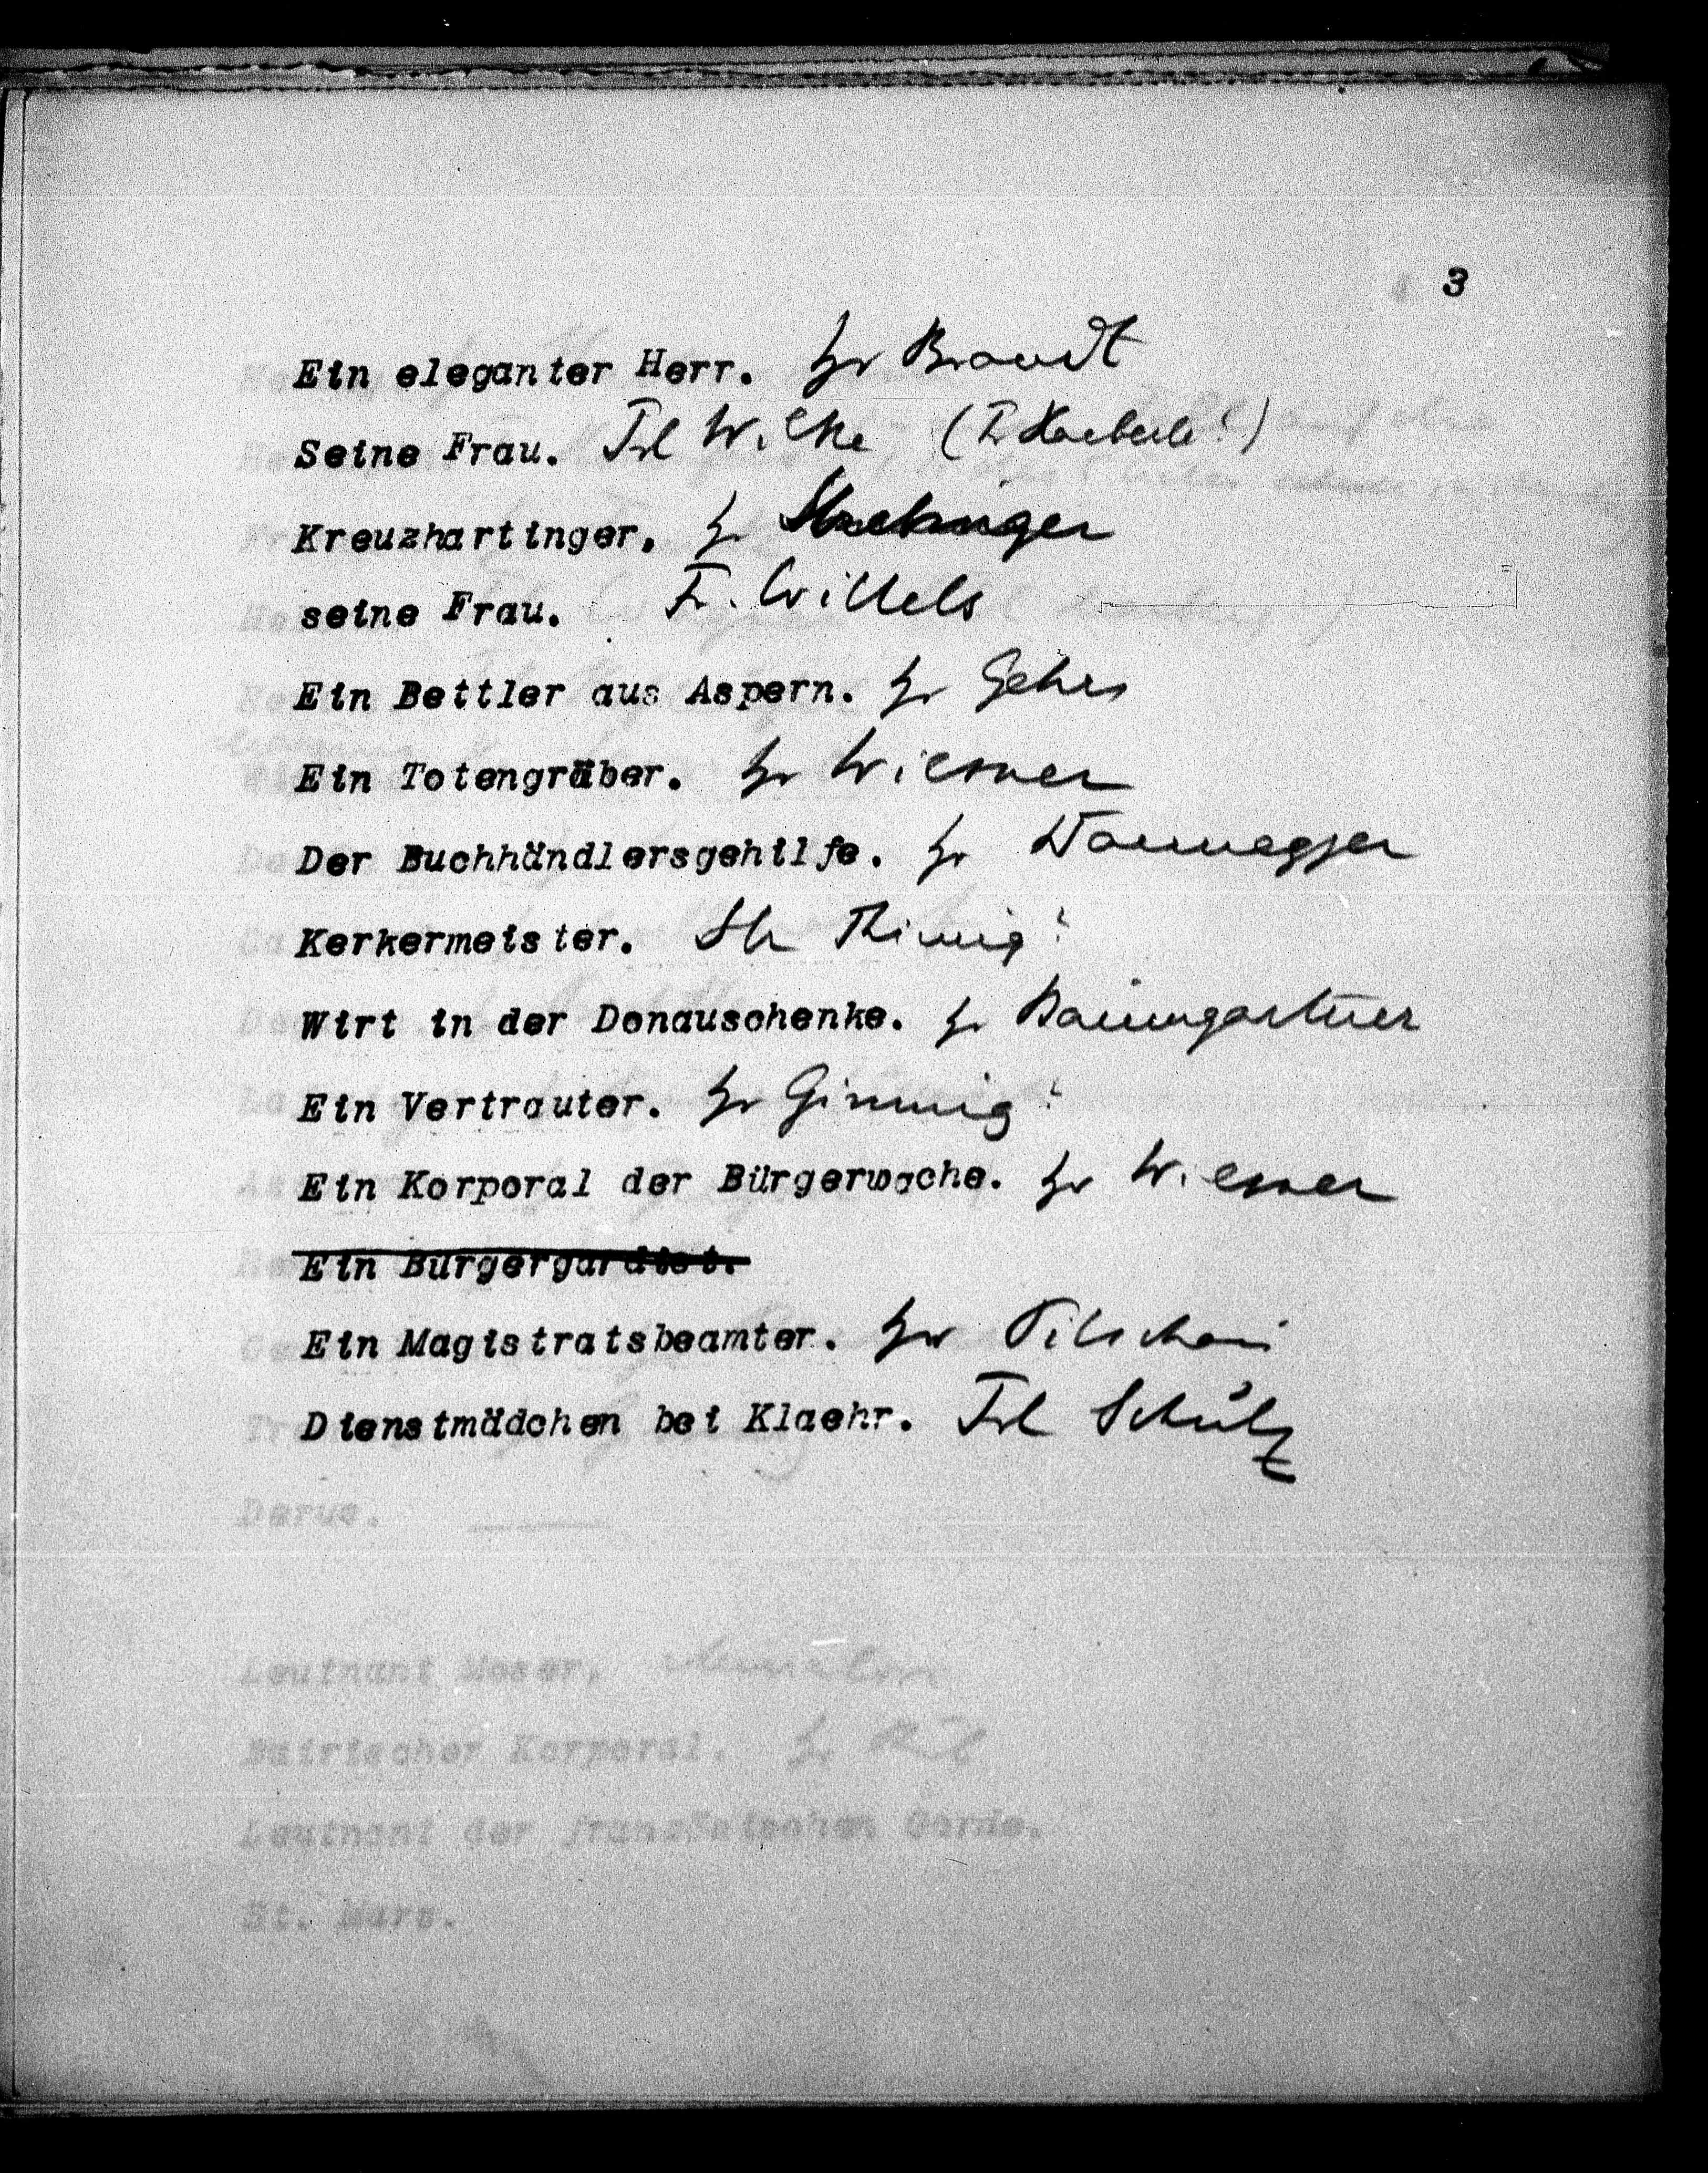 3
Ein eleganter Herr. Hr Brandt
Seine Frau. Frl Wilke (Fr Haeberle?)
Kreuzhartinger. Hr Strebinger
seine Frau. Fr. Wittels
Ein Bettler aus Aspern. Hr Gehrs
Ein Totengräber. Hr Wiesner
Der Buchhändlersgehilfe. Hr
Kerkermeister. Thimig?
Wirt in der Donauschenke. Hr Baumgartner
Ein Vertrauter. Hr Gimnig?
Ein Korporal der Bürgerwache. Hr Wiesner
Ein Bürgergardist.
Ein Magistratsbeamter. Hr
Dienstmädchen bei Klaehr. Frl Schütz
Darue.
Leutnant Moser,
Bairischer Korporal. Hr
Leutnant der französischen Garde.
St. Mars.